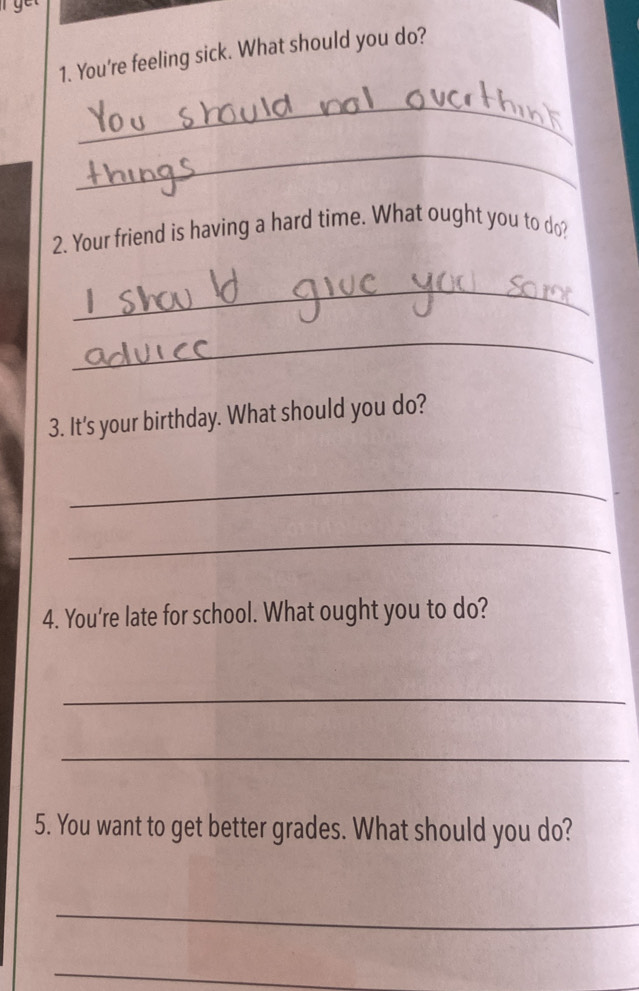 1. You're feeling sick. What should you do?
You should not overthink
things
2. Your friend is having a hard time. What ought you to do?
I should give you some
advice
3. It's your birthday. What should you do?
4. You're late for school. What ought you to do?
5. You want to get better grades. What should you do?